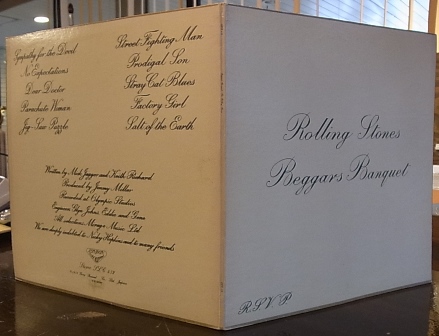 Sympathy for the Devil
No Expectations
Dear Doctor
Parachute Woman
Jig-Saw Puzzle
Street Fighting Man
Prodigal Son
Stray Cat Blues
Factory Girl
Salt of the Earth
Written by Mick Jagger and Keith Richard
Produced by Jimmy Miller
Recorded at Olympic Studios
Engineer Glyn Johns, Eddie and Gene
All selections Mirage Music Ltd
We are deeply indebted to Nicky Hopkins and to many friends
Rolling Stones
Beggars Banquet
R.S.V.P.